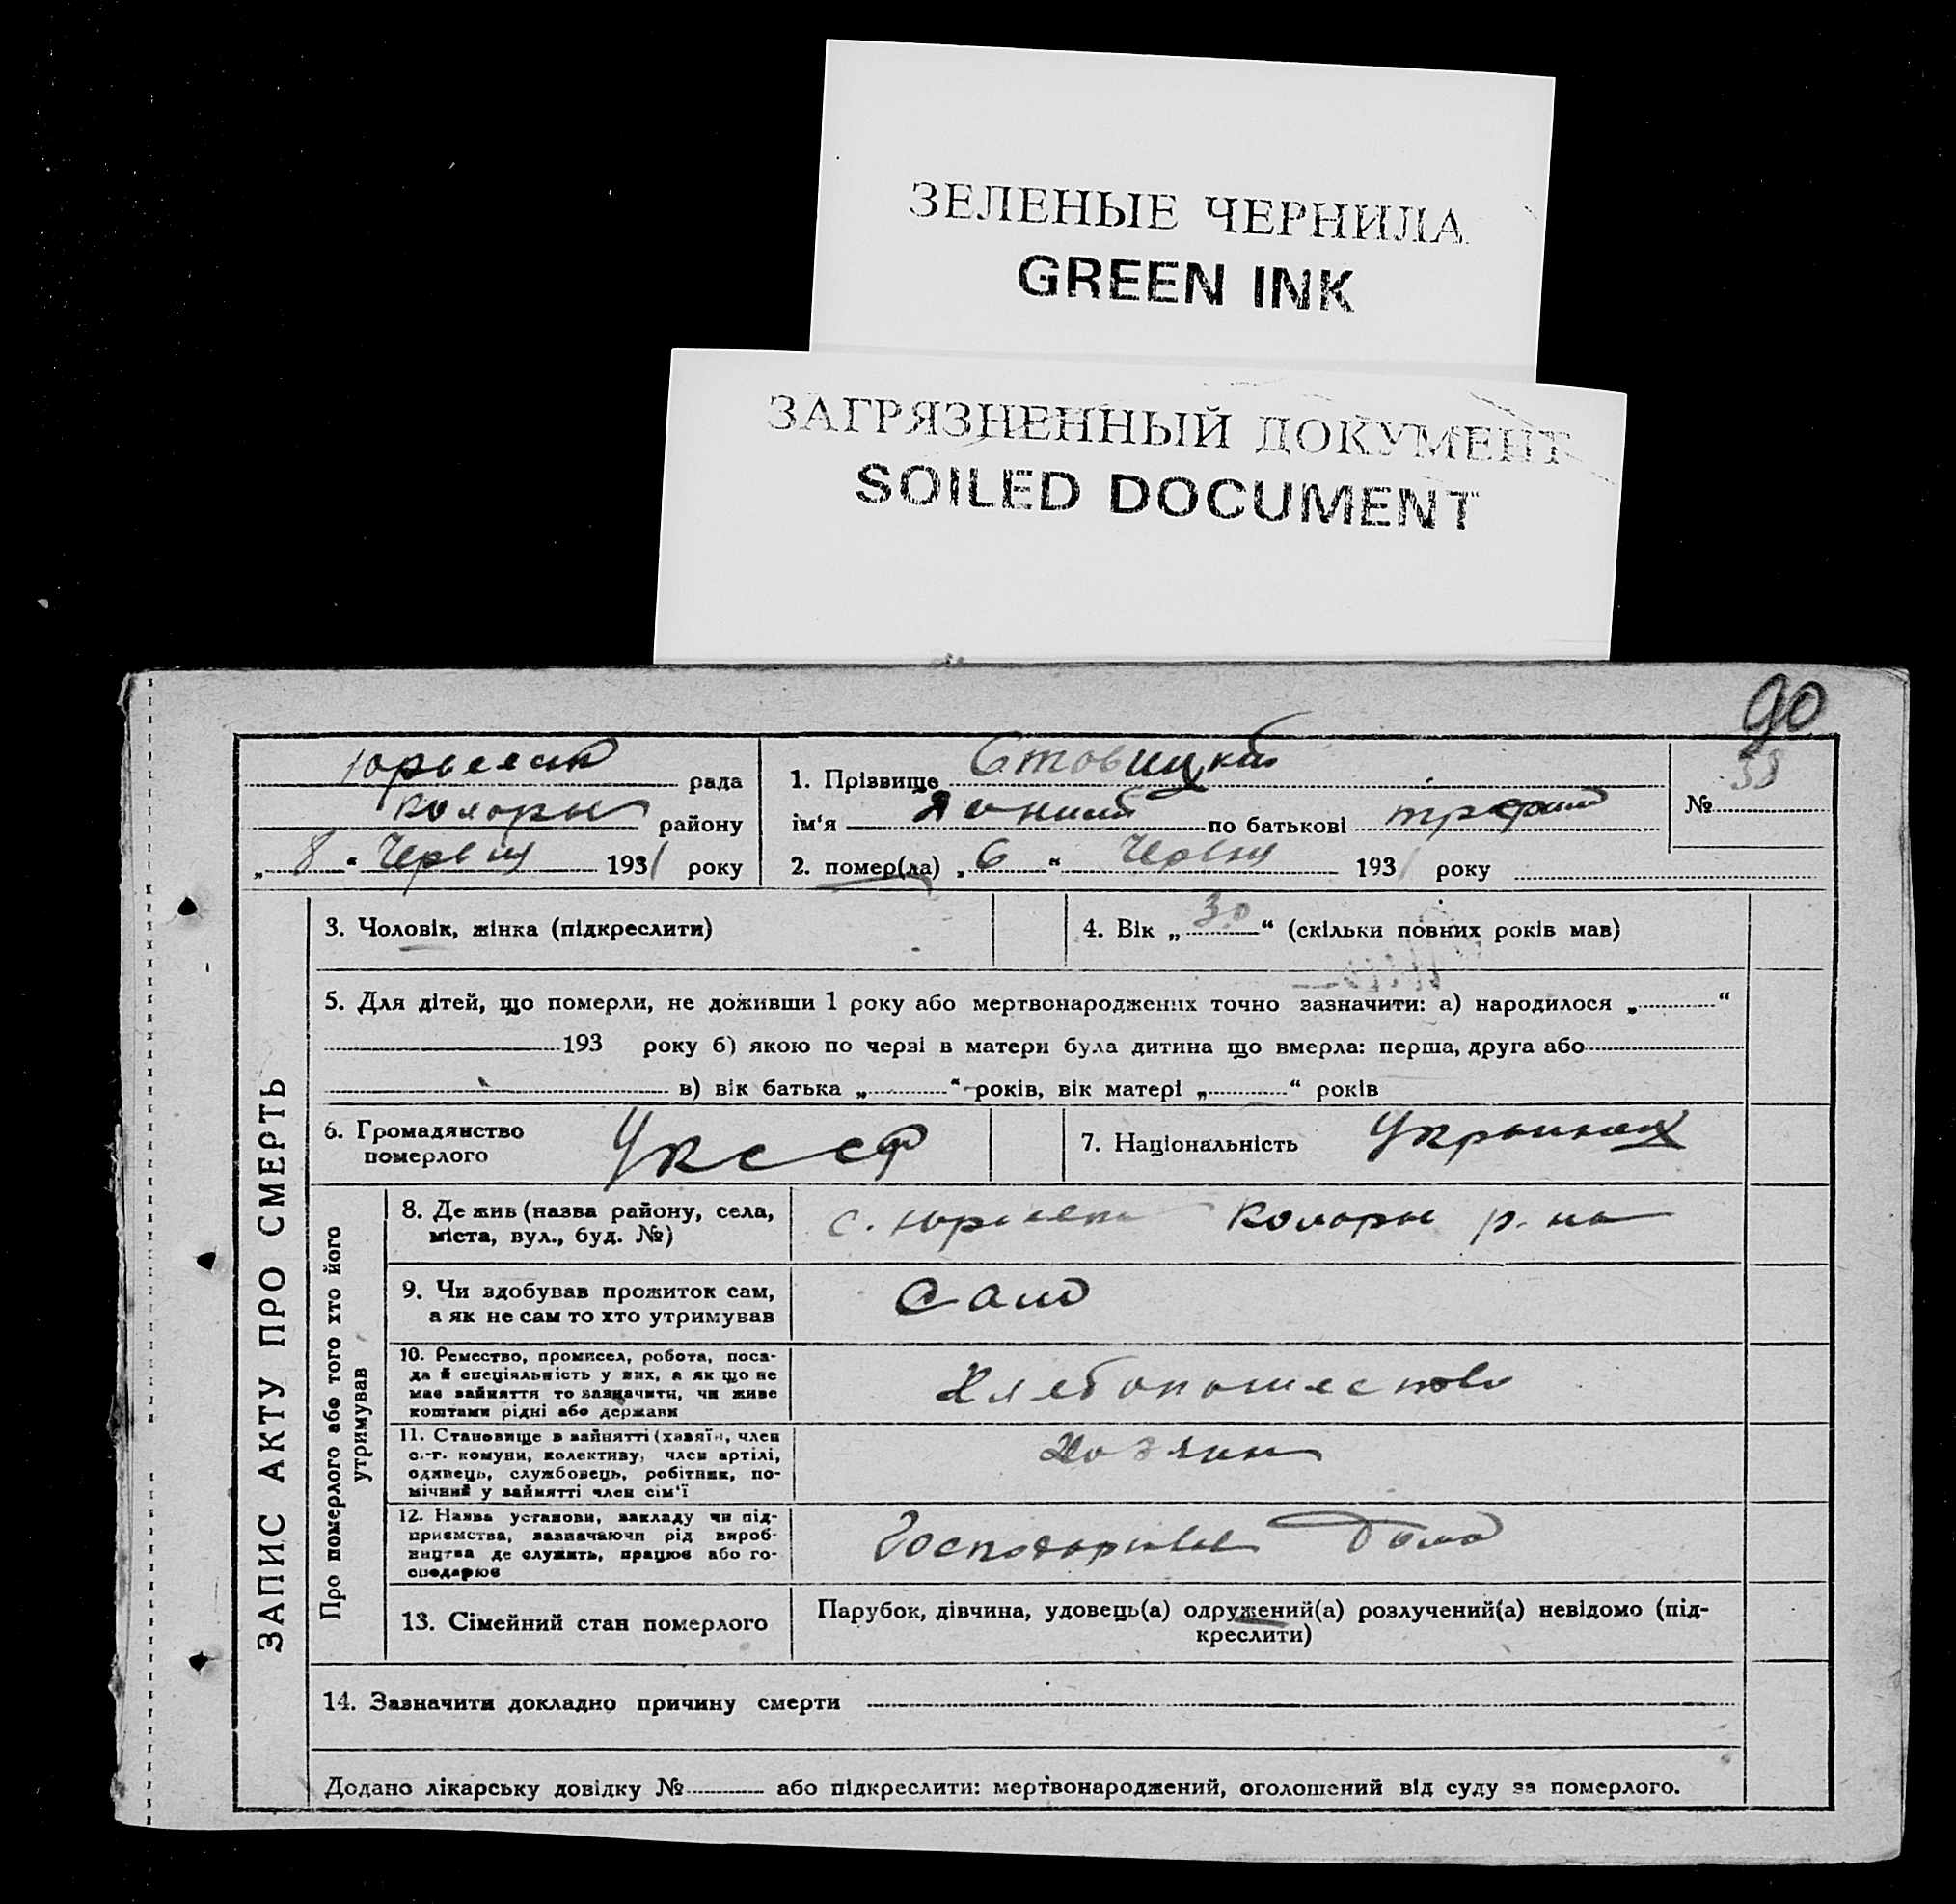 ЗЕЛЕНЫЕ ЧЕРНИЛА
GREEN INK
ЗАГРЯЗНЕННЫЙ ДОКУМЕНТ
SOILED DOCUMENT
90
рада
району
„ 8 “ Червня 1931 року
1. Прізвище Стовицкий
ім‘я по батькові
2. помер(ла) „ 6 “ Червня 193 року
38
№
ЗАПИС АКТУ ПРО СМЕРТЬ
3. Чоловік, жінка (підкреслити)
4. Вік „ 30 “ (скільки повних років мав)
5. Для дітей, що померли, не доживши 1 року або мертвонароджених точно зазначити: а) народилося „ “
193 року б) якою по черзі в матери була дитина що вмерла: перша, друга або
в) вік батька „ “ років, вік матері „ “ років
6. Громадянство
померлого
УКССР
7. Національність
Про померлого або того хто його
утримував
8. Де жив (назва району, села,
міста, вул., буд. №)
с. р-на
9. Чи здобував прожиток сам,
а як не сам то хто утримував
Сам
10. Ремество, промисел, робота, поса-
да й спеціяльність у них, а як що не
має зайняття то зазначити, чи живе
коштами рідні або держави
Хлебопашество
11. Становище в зайнятті (хазяїн, член
с.-г. комуни, колективу, член артілі,
одинець, службовець, робітник, по-
мічний у зайнятті член сім‘ї
Хозяин
12. Назва установи, закладу чи під-
приємства, зазначаючи рід вироб-
ництва де служить, працює або го-
сподарює
Дома
13. Сімейний стан померлого
Парубок, дівчина, удовець(а) одружений(а) розлучений(а) невідомо (під-
креслити)
14. Зазначити докладно причину смерти
Додано лікарську довідку № або підкреслити: мертвонароджений, оголошений від суду за померлого.